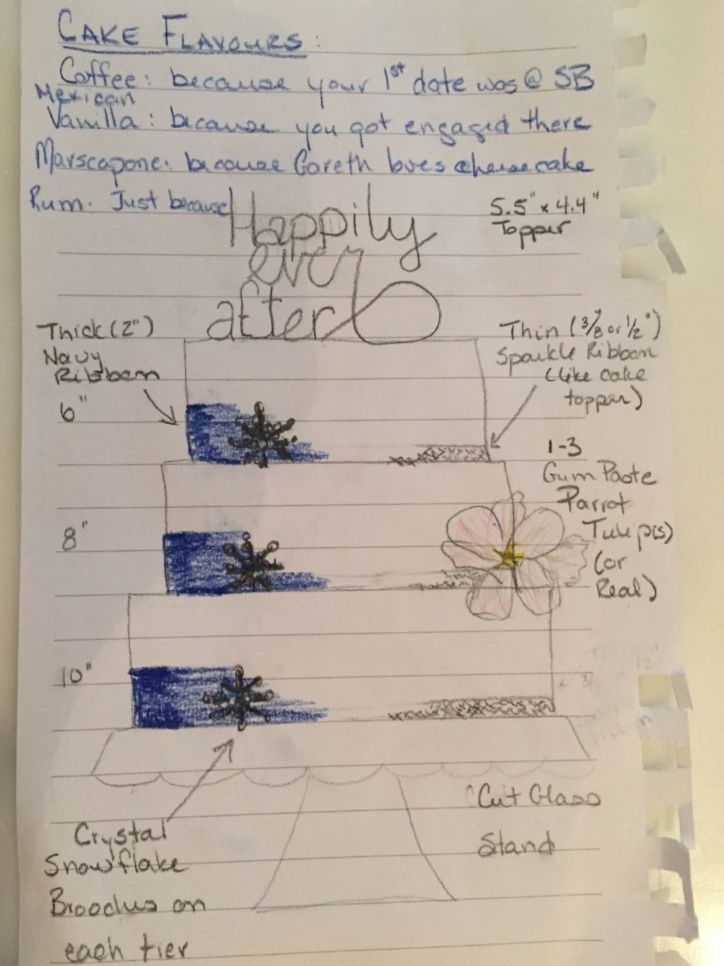 CAKE FLAVOURS:
Coffee: because your 1st date was @ SB
Mexican
Vanilla: because you got engaged there
Marscapone: because Gareth loves cheesecake
Rum. Just because
Happily
ever
after
5.5" x 4.4"
Topper
Thick (2")
Navy
Ribbon
Thin (3/8 or 1/2")
Sparkle Ribbon
(like cake
topper)
6"
1-3
Gum Paste
Parrot
Tulip(s)
(or
Real)
8"
10"
Cut Glass
Stand
Crystal
Snowflake
Brooches on
each tier